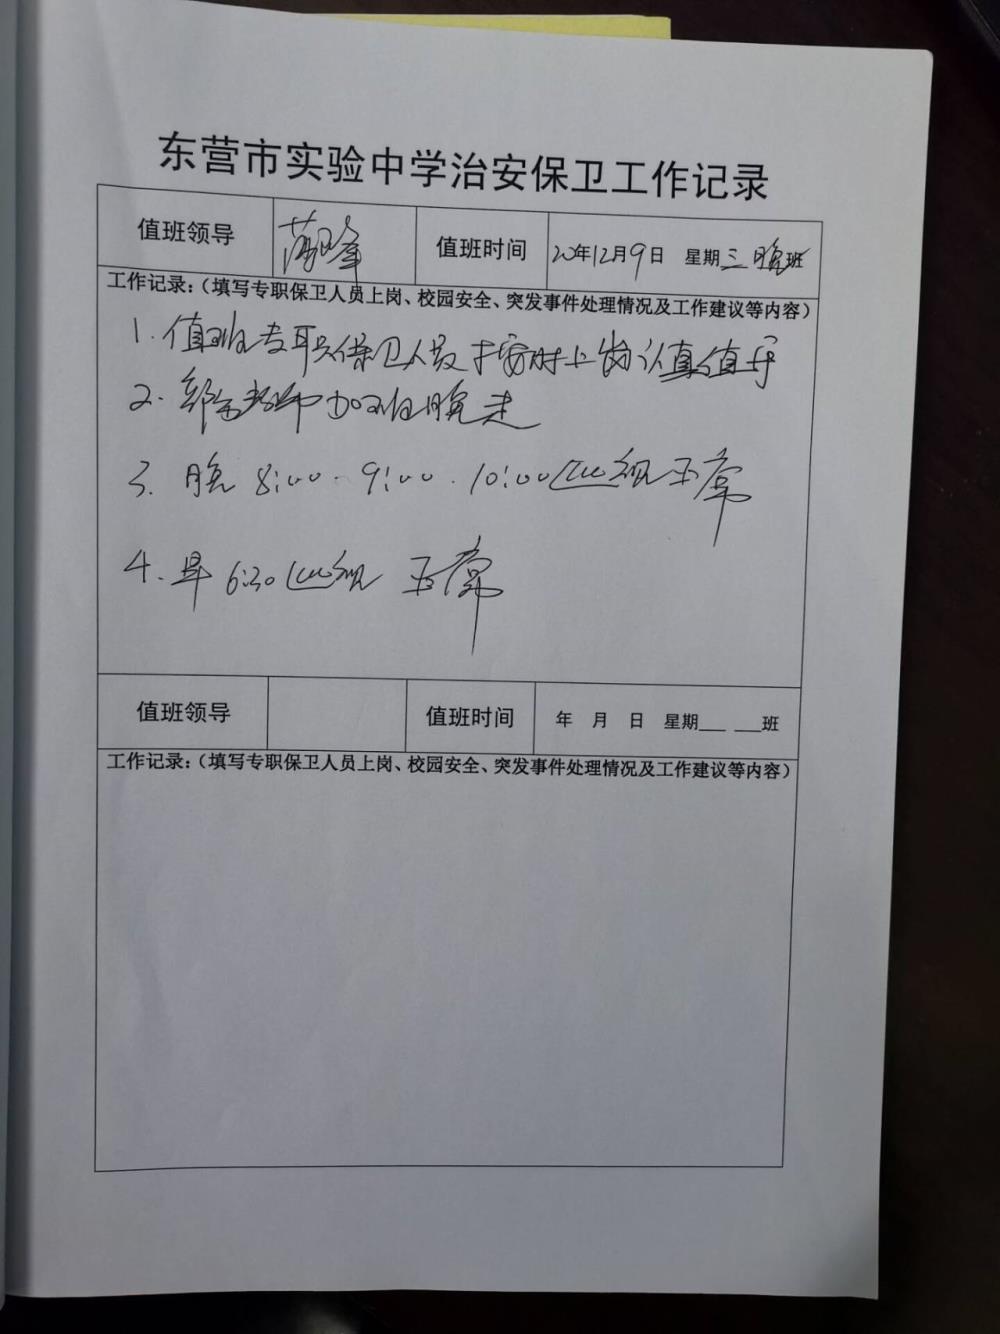 东营市实验中学治安保卫工作记录
值班领导 值班时间 20年12月9日 星期三晚班
工作记录：（填写专职保卫人员上岗、校园安全、突发事件处理情况及工作建议等内容）
1.值班专职保卫人员按时上岗认真值守
2.老师加班晚走
3.晚8:00.9:00.10:00巡视正常
4.早6:30巡视 正常
值班领导 值班时间 年 月 日 星期___ ___班
工作记录：（填写专职保卫人员上岗、校园安全、突发事件处理情况及工作建议等内容）